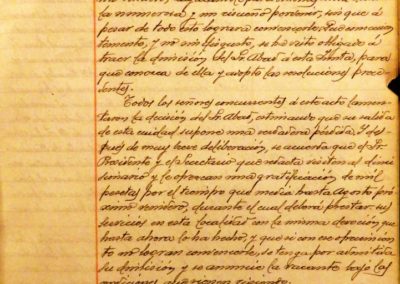 la numerosa, y un cisions pertener, sin que á
pesar de todo esto lograra convencerle. Que en su con-
temento, y no sin disgusto, se ha visto obligado á
traer la dimisión del Sr. Abad á esta Junta, para
que conozca de ella y adopte las resoluciones proce-
dentes.
Todos los señores concurrentes á este acto lamen-
taron la decisión del Sr. Abad, estimando que su salida
de esta ciudad supone una verdadera pérdida. Y des-
pués de muy breve deliberación, se acuerda que el Sr.
Presidente y el Secretario que redacta visiten al dimi-
sionario y le ofrezcan una gratificación de mil
pesetas por el tiempo que media hasta Agosto pró-
ximo venidero, durante el cual deberá prestar sus
servicios en esta localidad con la misma devoción que
hasta ahora lo ha hecho, y que si con ese ofrecimien-
to no logran convencerle, se tenga por admitida
su dimisión y se anuncie la vacante bajo las